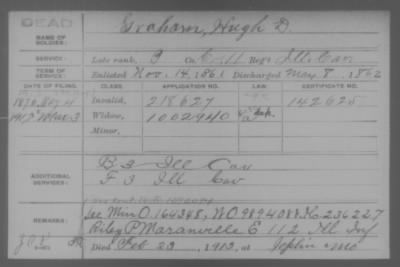 DEAD
NAME OF SOLDIER: Graham, Hugh D.
SERVICE: Late rank, P Co. C, 11 Reg't Ill. Cav.
TERM OF SERVICE: Enlisted Nov. 14, 1861 Discharged May 8, 1862
DATE OF FILING. CLASS. APPLICATION NO. LAW. CERTIFICATE NO.
Invalid, 218627 142625
Widow, 1002940
Minor,
ADDITIONAL SERVICES: B 3 Ill Cav
F 3 Ill Cav
REMARKS: See Min O. 164348, W.O. 989408
Riley P Maranville E 112 Ill Inf
Died Feb 23, 1912, at Joplin Mo